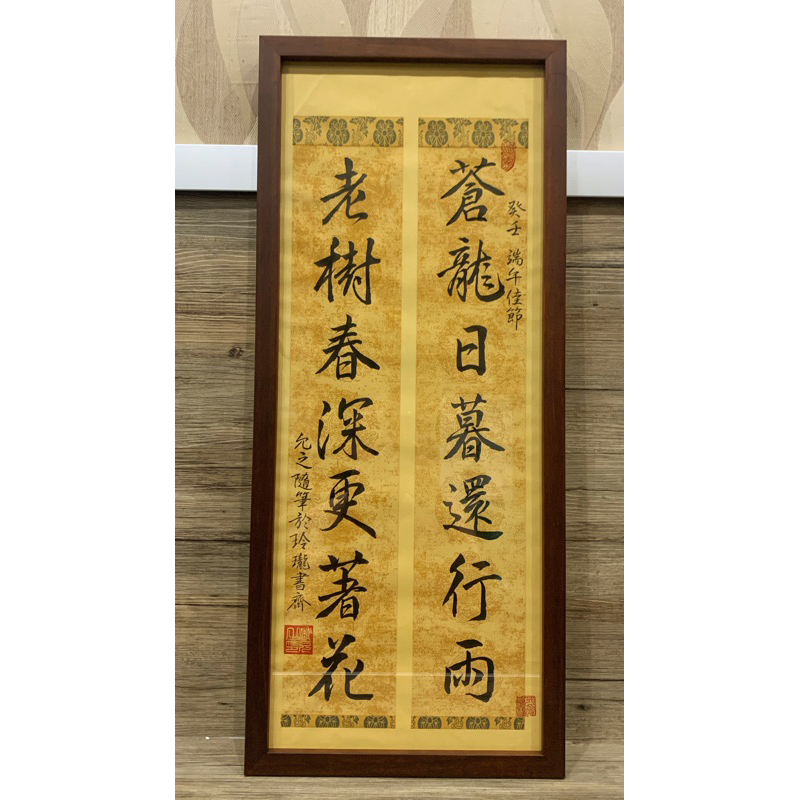 癸壬 端午佳節
蒼龍日暮還行雨
老樹春深更著花
允之隨筆於玲瓏書齋